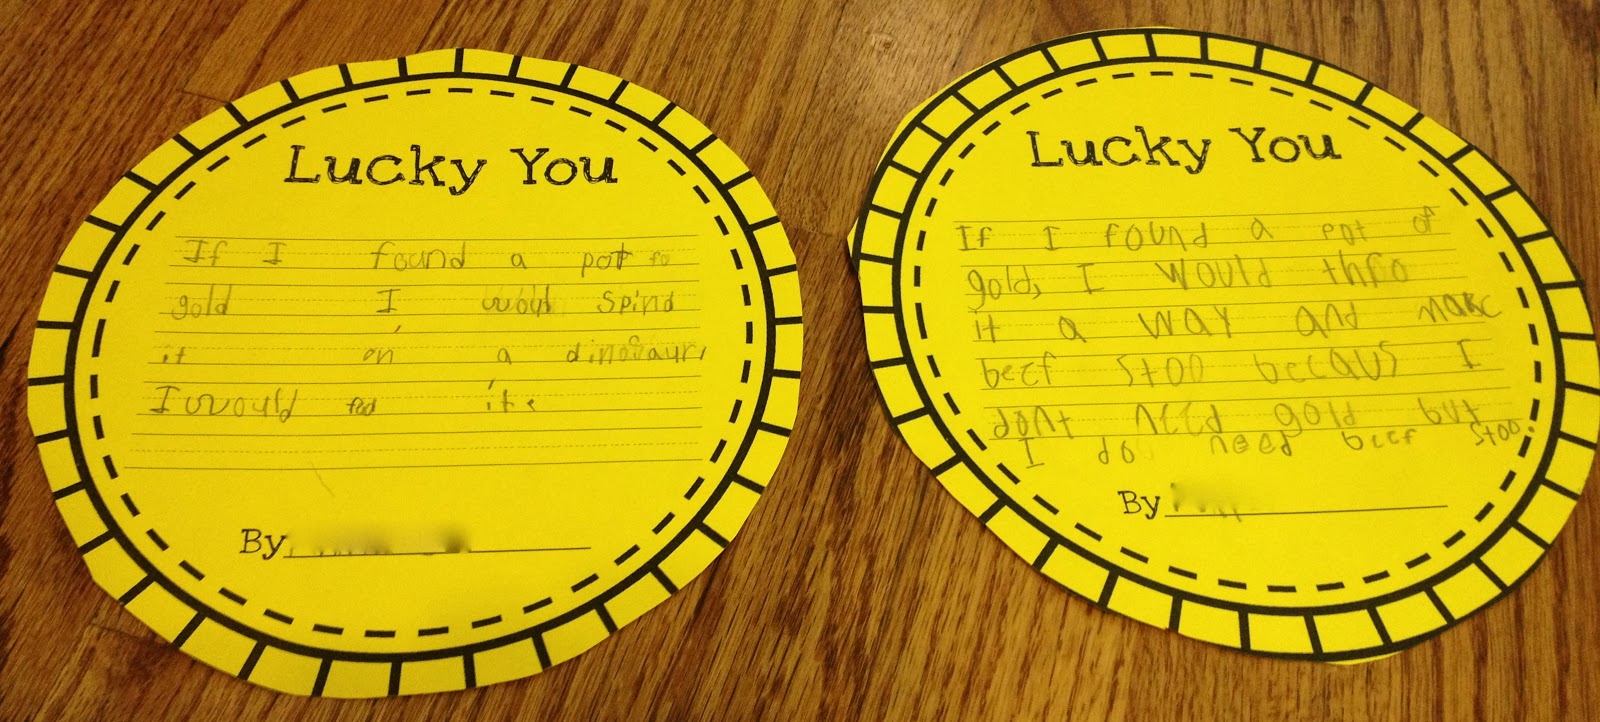 Lucky You
If I found a pot fo
gold I would spind
it on a dinosaur,
I would fed it.
By
Lucky You
If I found a pot of
gold, I would thro
it a way and make
beef stoo becaus I
dont need gold but
I do need beef stoo.
By